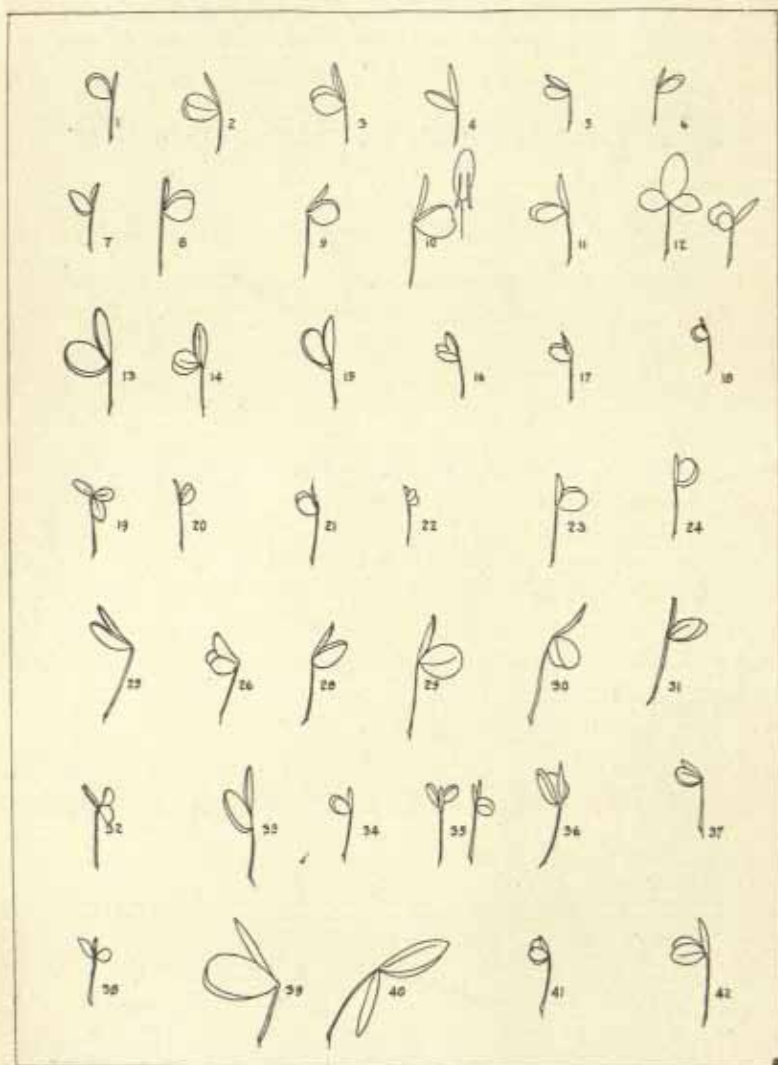 1 2 3 4 5 6
7 8 9 10 11 12
13 14 15 16 17 18
19 20 21 22 23 24
25 26 28 29 30 31
32 33 34 35 36 37
38 39 40 41 42